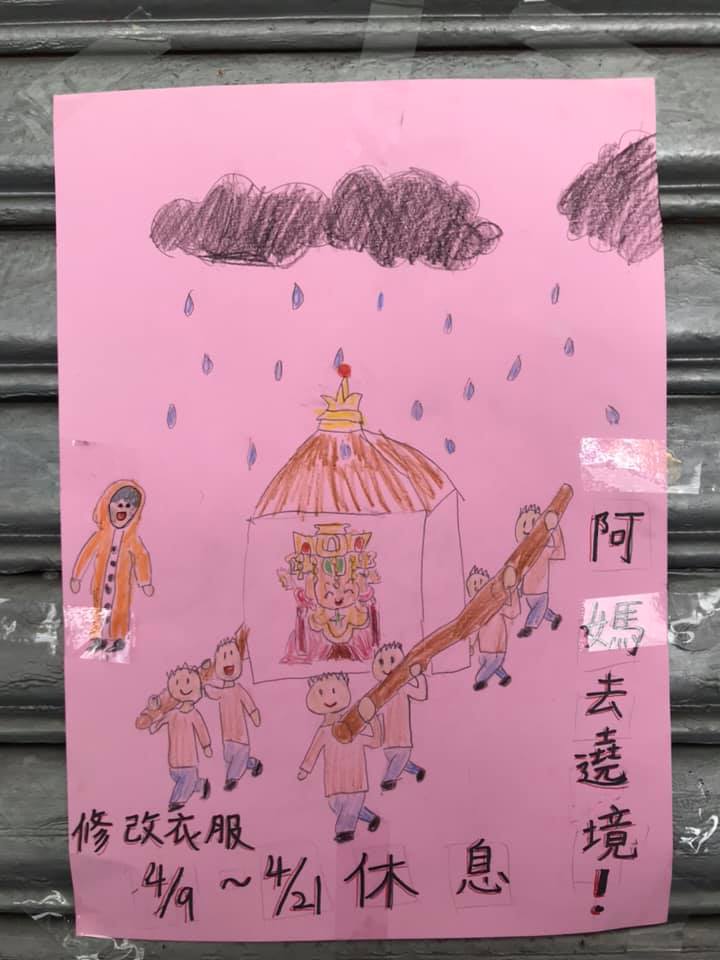 阿媽去遶境！
修改衣服
4/9～4/21休息